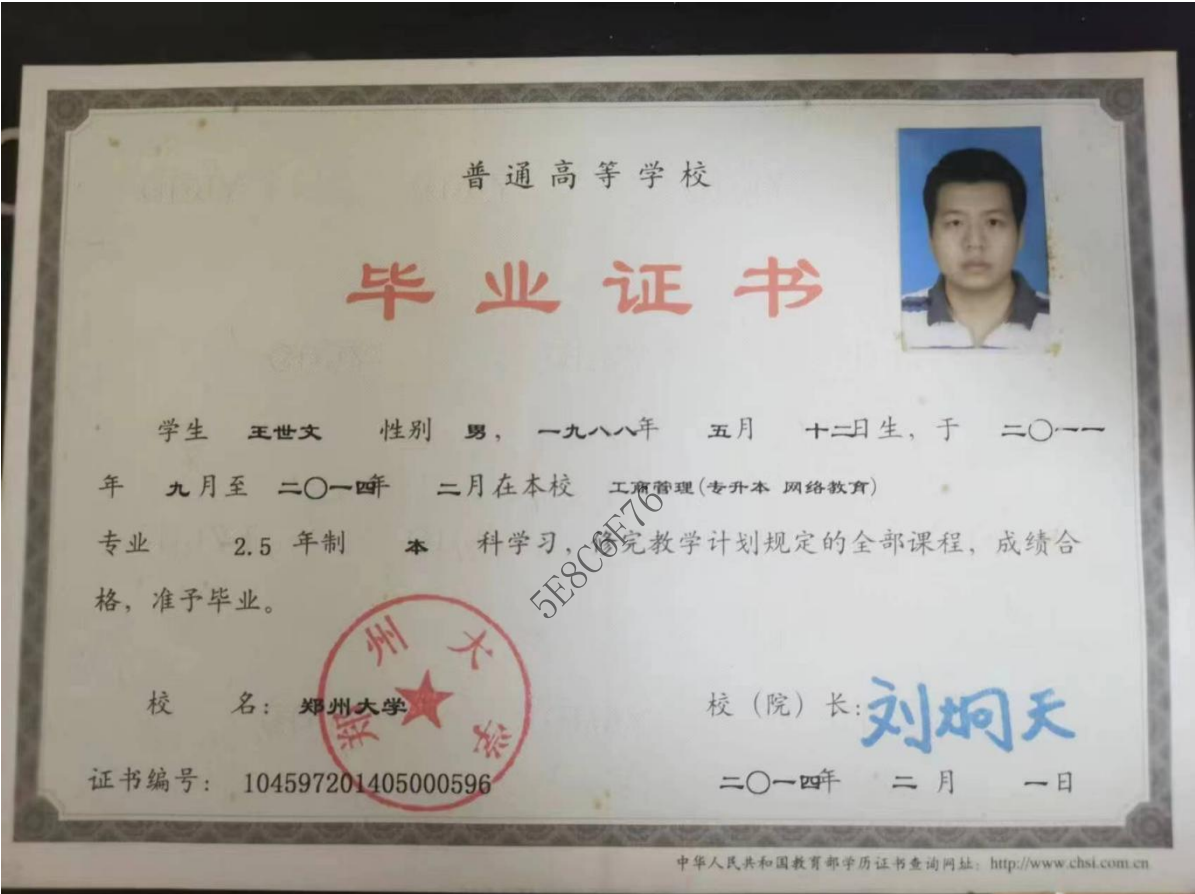 普通高等学校
毕业证书
学生 王世文 性别 男，一九八八年 五月 十二日生，于 二〇一一
年 九月至 二〇一四年 二月在本校 工商管理(专升本 网络教育)
专业 2.5 年制 本 科学习，修完教学计划规定的全部课程，成绩合
格，准予毕业。
校 名：郑州大学
郑州大学
校（院）长：刘炯天
证书编号：104597201405000596
二〇一四年 二月 一日
中华人民共和国教育部学历证书查询网址：http://www.chsi.com.cn
5E8C6E76